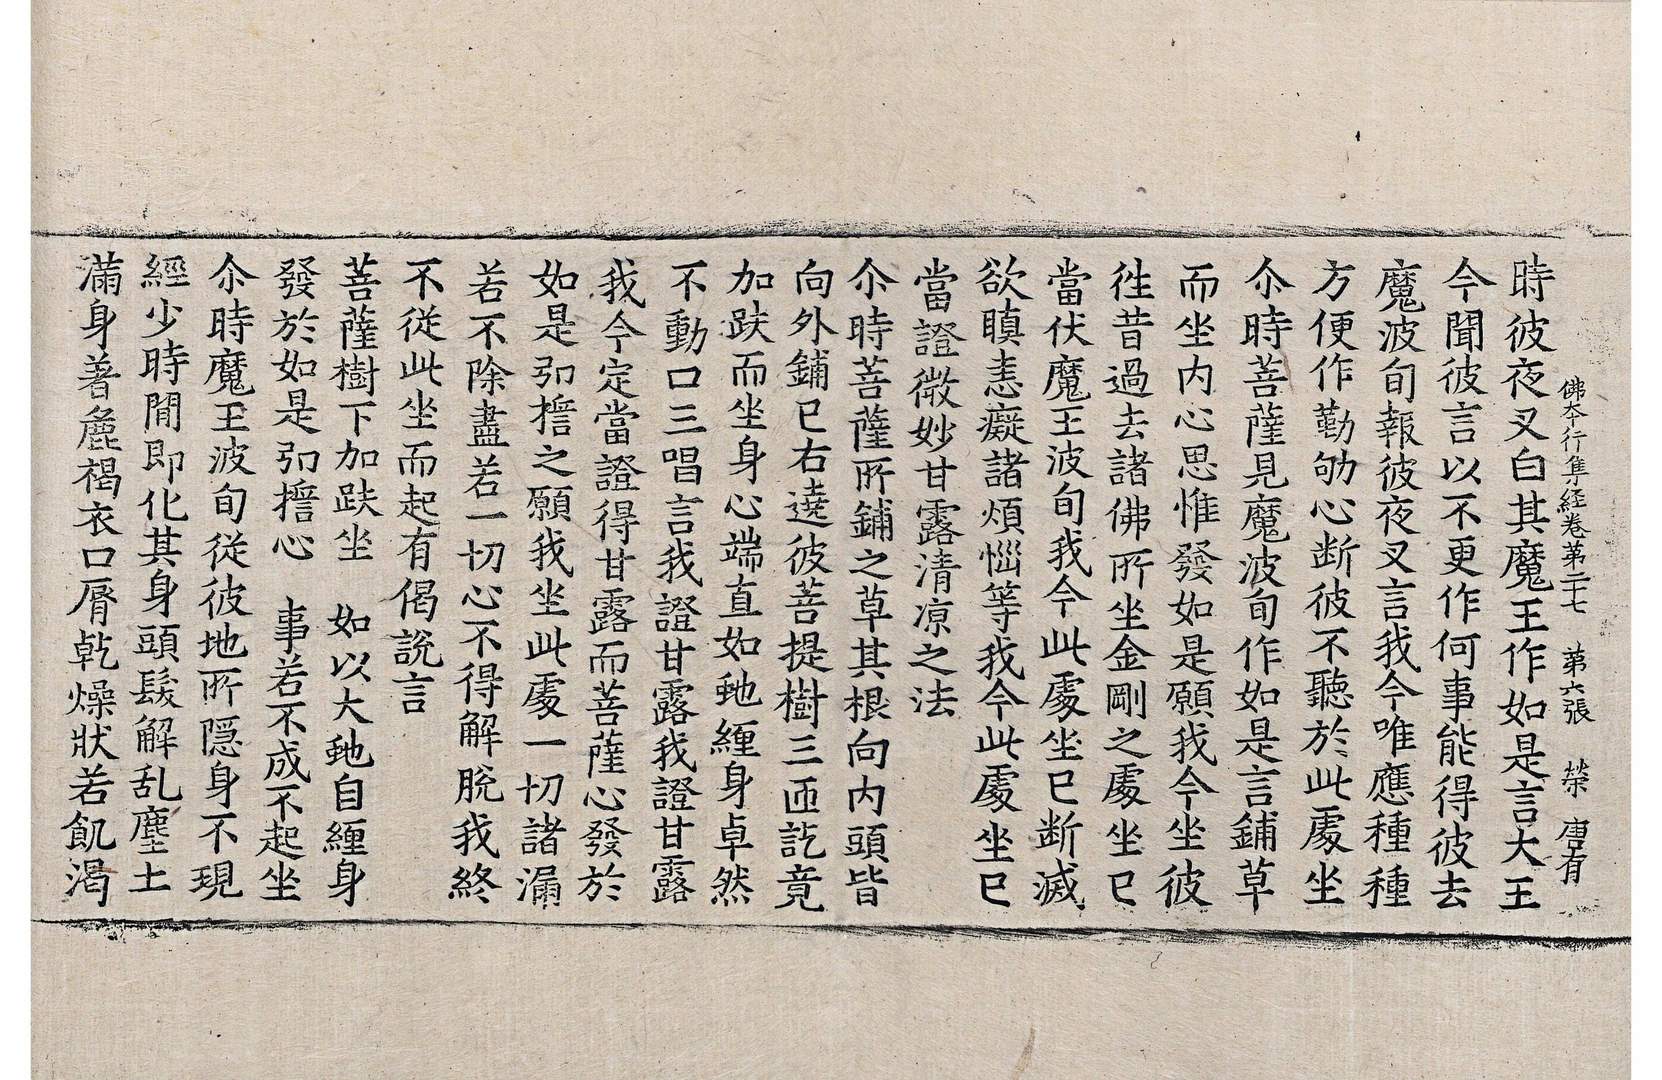 佛本行集経卷第二十七 第六張 榮 唐有
時彼夜叉白其魔王作如是言大王
今聞彼言以不更作何事能得彼去
魔波旬報彼夜叉言我今唯應種種
方便作勤劬心断彼不聽於此處坐
尒時菩薩見魔波旬作如是言鋪草
而坐内心思惟發如是願我今坐彼
徃昔過去諸佛所坐金剛之處坐已
當伏魔王波旬我今此處坐已断滅
欲瞋恚癡諸煩惱等我今此處坐已
當證微妙甘露清凉之法
尒時菩薩所鋪之草其根向内頭皆
向外鋪已右遶彼菩提樹三匝訖竟
加趺而坐身心端直如虵纒身卓然
不動口三唱言我證甘露我證甘露
我今定當證得甘露而菩薩心發於
如是弘擔之願我坐此處一切諸漏
若不除盡若一切心不得解脫我終
不從此坐而起有偈說言
菩薩樹下加趺坐 如以大虵自纒身
發於如是弘擔心 事若不成不起坐
尒時魔王波旬從彼地所隱身不現
經少時閒即化其身頭髮解乱塵土
滿身著麁褐衣口脣乾燥狀若飢渴